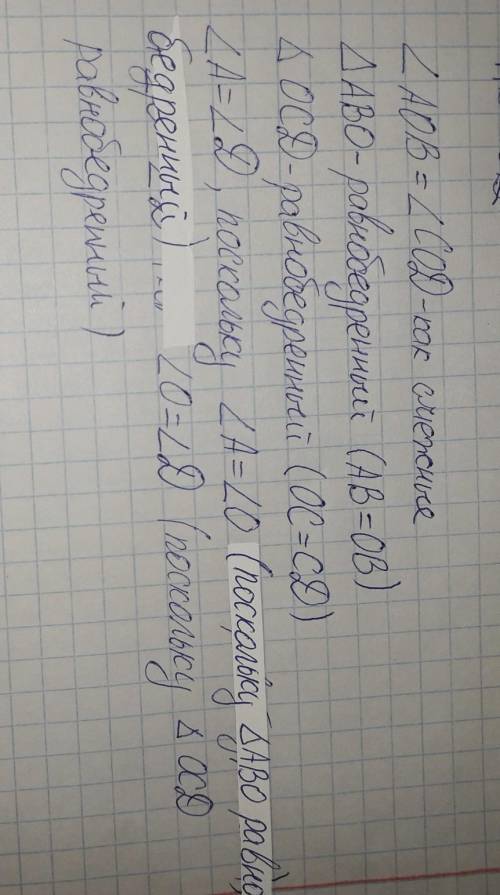 ∠AOB = ∠COD - как смежные
△ABO - равнобедренный (AB = OB)
△OCD - равнобедренный (OC = CD)
∠A = ∠D, поскольку ∠A = ∠O (поскольку △ABO равно
бедренный) ∠O = ∠D (поскольку △OCD
равнобедренный)